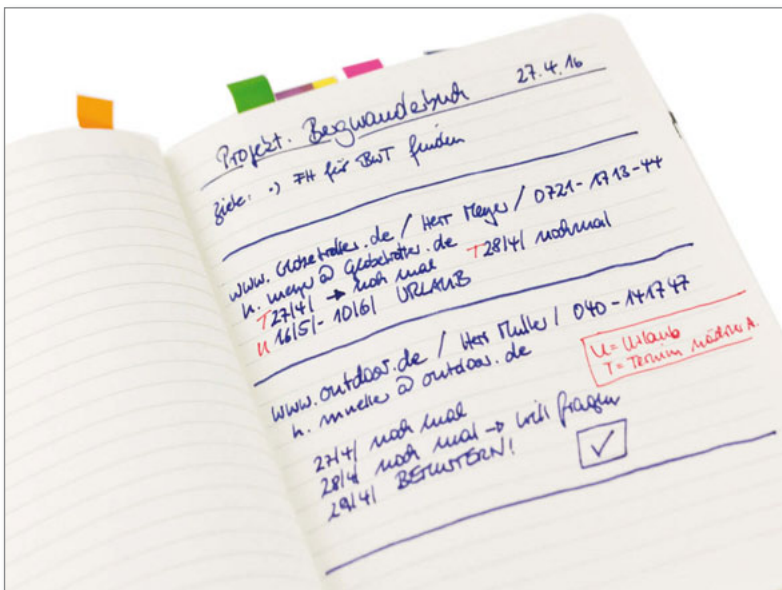 27.4.16
Projekt: Bergwanderbuch
Ziele: •) FH für BWT finden
www.Globetrotter.de / Herr Meyer / 0721-1713-44
h.meyer@globetrotter.de
T 27/4/ → noch mal T 28/4/ nochmal
U 16/5/-10/6/ URLAUB
www.outdoor.de / Herr Müller / 040-141747
h.mueller@outdoor.de
U = Urlaub
T = Termin nächster A.
27/4/ noch mal
28/4/ noch mal → will fragen
29/4/